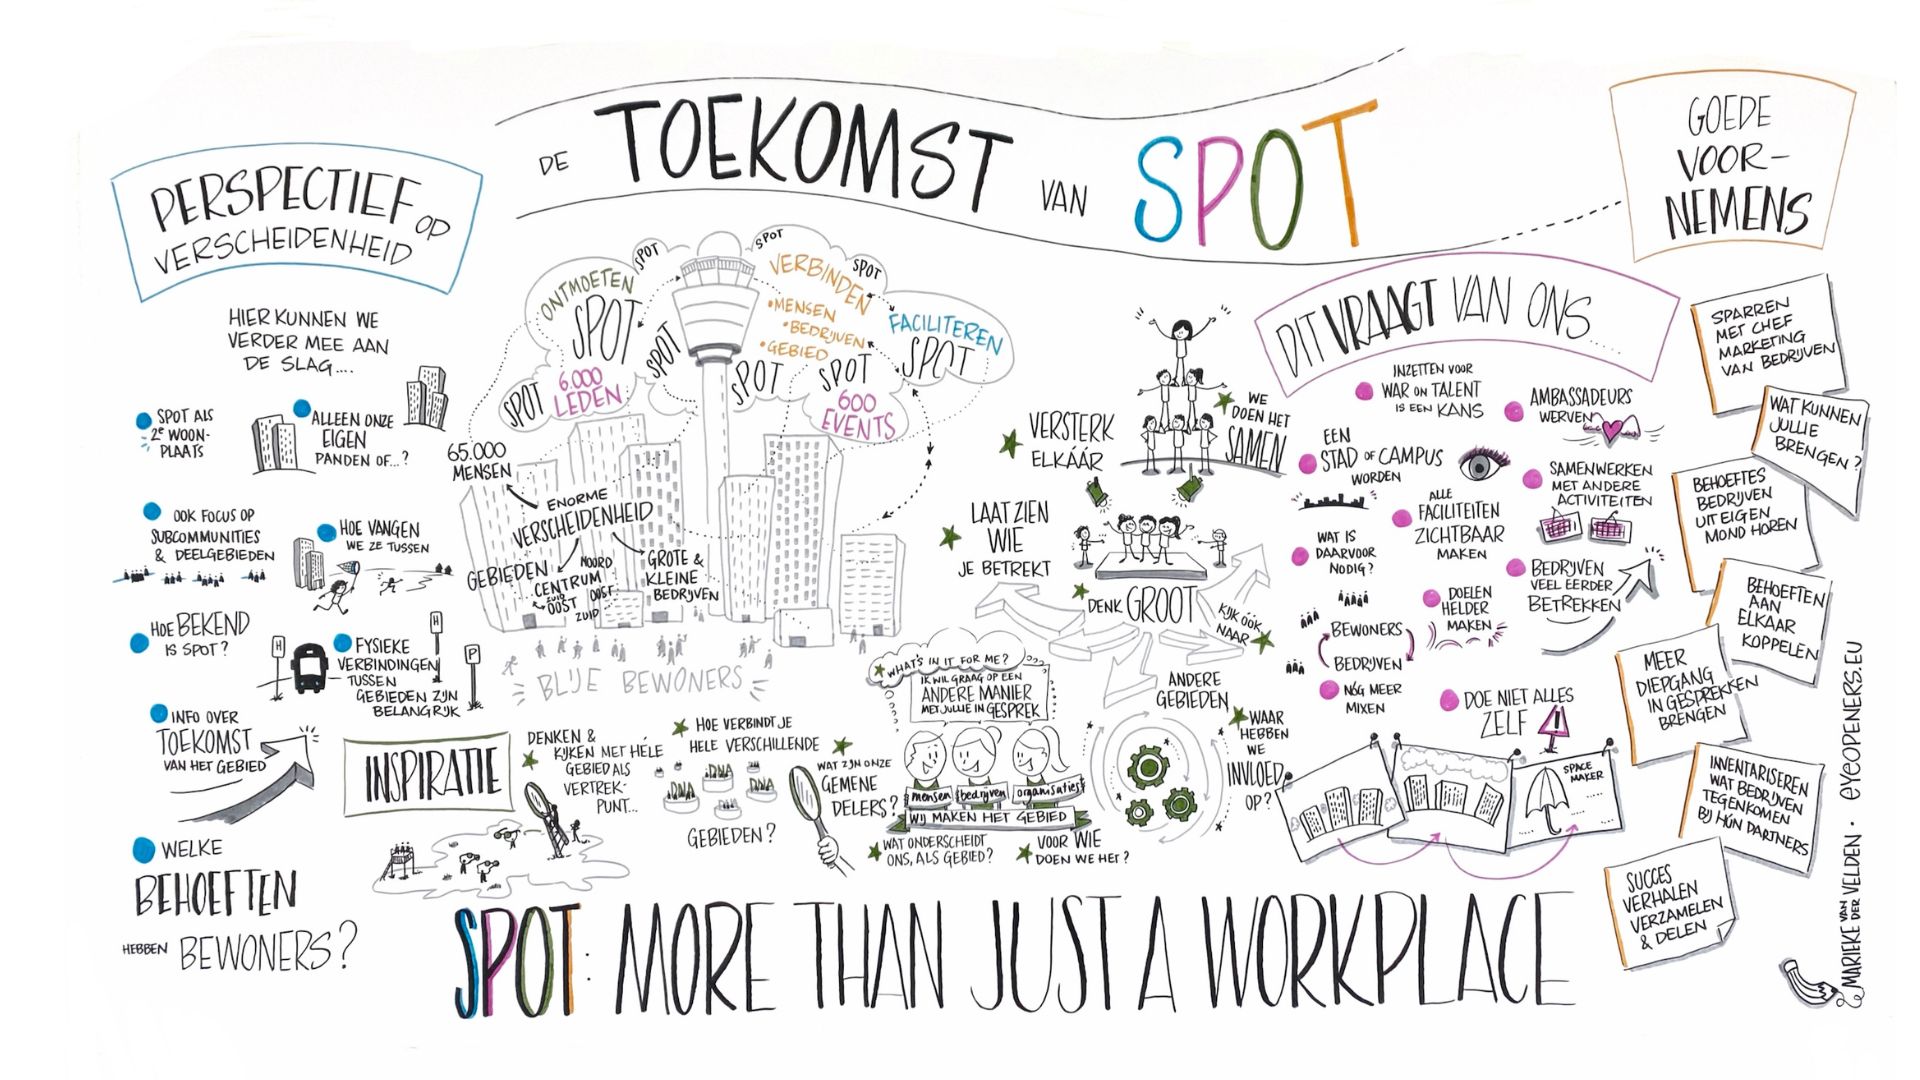 DE TOEKOMST VAN SPOT
PERSPECTIEF OP
VERSCHEIDENHEID
HIER KUNNEN WE
VERDER MEE AAN
DE SLAG....
SPOT ALS
2e WOON-
PLAATS
ALLEEN ONZE
EIGEN
PANDEN OF...?
OOK FOCUS OP
SUBCOMMUNITIES
& DEELGEBIEDEN
HOE VANGEN
WE ZE TUSSEN
HOE BEKEND
IS SPOT?
H
H
P
FYSIEKE
VERBINDINGEN
TUSSEN
GEBIEDEN ZIJN
BELANGRIJK
INFO OVER
TOEKOMST
VAN HET GEBIED
WELKE
BEHOEFTEN
HEBBEN BEWONERS?
ONTMOETEN
SPOT
SPOT
SPOT
SPOT
6.000
LEDEN
SPOT
SPOT
VERBINDEN
• MENSEN
• BEDRIJVEN
• GEBIED
SPOT
SPOT
FACILITEREN
SPOT
SPOT
600
EVENTS
65.000
MENSEN
ENORME
VERSCHEIDENHEID
GEBIEDEN
NOORD
CENTRUM
ZUID
OOST
OOST
ZUID
GROTE &
KLEINE
BEDRIJVEN
BLIJE BEWONERS
INSPIRATIE
DENKEN &
KIJKEN MET HÉLE
GEBIED ALS
VERTREK-
PUNT...
HOE VERBINDT JE
HELE VERSCHILLENDE
DNA
DNA
DNA
DNA
GEBIEDEN?
WAT ZIJN ONZE
GEMENE
DELERS?
WHAT'S IN IT FOR ME?
IK WIL GRAAG OP EEN
ANDERE MANIER
MET JULLIE IN GESPREK
mensen bedrijven organisaties
WIJ MAKEN HET GEBIED
WAT ONDERSCHEIDT
ONS, ALS GEBIED?
VOOR WIE
DOEN WE HET?
VERSTERK
ELKÁÁR
WE
DOEN HET
SAMEN
LAAT ZIEN
WIE
JE BETREKT
DENK GROOT
KIJK OOK
NAAR
ANDERE
GEBIEDEN
WAAR
HEBBEN
WE
INVLOED
OP?
DIT VRAAGT VAN ONS.....
INZETTEN VOOR
WAR on TALENT
IS EEN KANS
AMBASSADEURS
WERVEN
EEN
STAD OF CAMPUS
WORDEN
SAMENWERKEN
MET ANDERE
ACTIVITEITEN
ALLE
FACILITEITEN
ZICHTBAAR
MAKEN
WAT IS
DAARVOOR
NODIG?
BEDRIJVEN
VEEL EERDER
BETREKKEN
DOELEN
HELDER
MAKEN
BEWONERS
BEDRIJVEN
NÓG MEER
MIXEN
DOE NIET ALLES
ZELF
!
SPACE
MAKER
GOEDE
VOOR-
NEMENS
SPARREN
MET CHEF
MARKETING
VAN BEDRIJVEN
WAT KUNNEN
JULLIE
BRENGEN?
BEHOEFTES
BEDRIJVEN
UIT EIGEN
MOND HOREN
BEHOEFTEN
AAN
ELKAAR
KOPPELEN
MEER
DIEPGANG
IN GESPREKKEN
BRENGEN
INVENTARISEREN
WAT BEDRIJVEN
TEGENKOMEN
BIJ HÚN PARTNERS
SUCCES
VERHALEN
VERZAMELEN
& DELEN
SPOT: MORE THAN JUST A WORKPLACE
MARIEKE VAN DER VELDEN · eYeOPENERS.EU